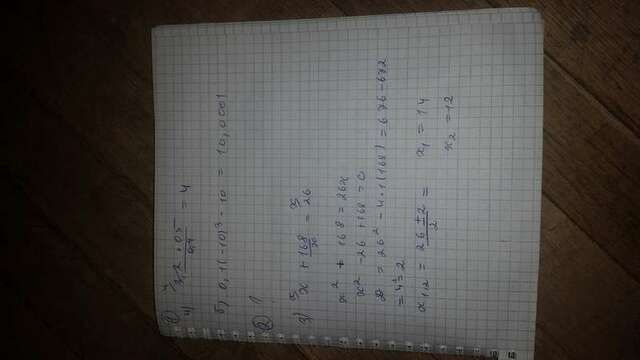 ①
а) 3,2 · 0,5 / 0,4 = 4
б) 0,1(-10)³ - 10 = 10,0001
② 1
3) x + 168/x = 26
x² + 168 = 26x
x² - 26 + 168 = 0
D = 26² - 4·1(168) = 676 - 672
= 4 = 2
x₁,₂ = 26 ± 2 / 2 = x₁ = 14
x₂ = 12